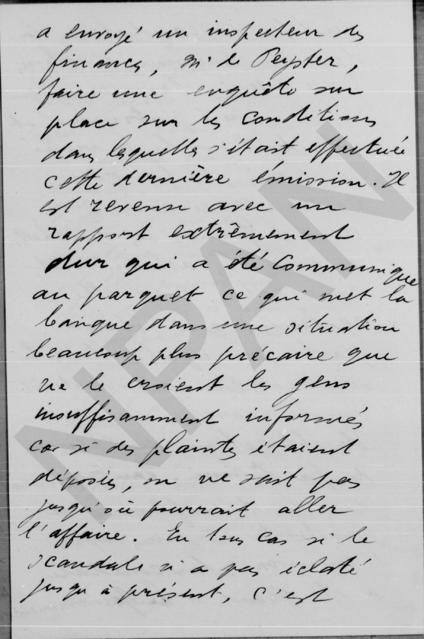 a envoyé un inspecteur des
finances, Mr de Peyster,
faire une enquête sur
place sur les conditions
dans lesquelles s'était effectuée
cette dernière émission. Il
est revenu avec un
rapport extrêmement
dur qui a été communiqué
au parquet ce qui met la
banque dans une situation
beaucoup plus précaire que
ne le croient les gens
insuffisamment informés
car si des plaintes étaient
déposées, on ne sait pas
jusqu'où pourrait aller
l'affaire. En tous cas si le
scandale n'a pas éclaté
jusqu'à présent, c'est
NPAN